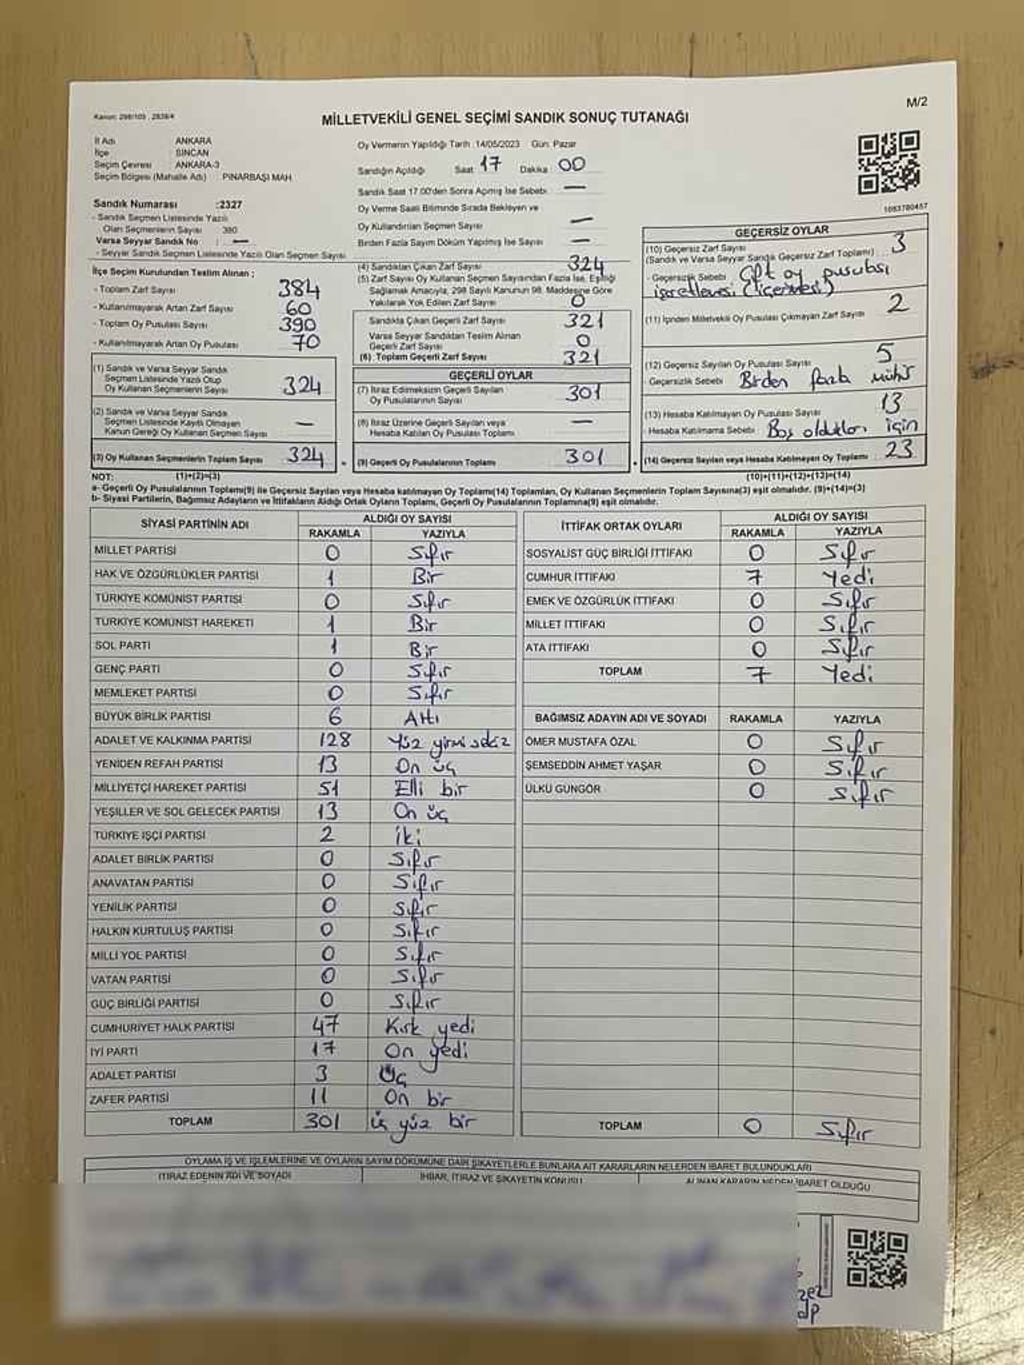 Kanun: 298/105 , 2839/4
M/2
MİLLETVEKİLİ GENEL SEÇİMİ SANDIK SONUÇ TUTANAĞI
İl Adı ANKARA
İlçe SİNCAN
Seçim Çevresi ANKARA-3
Seçim Bölgesi (Mahalle Adı) PINARBAŞI MAH.
Sandık Numarası :2327
- Sandık Seçmen Listesinde Yazılı
Olan Seçmenlerin Sayısı 380
Varsa Seyyar Sandık No : —
- Seyyar Sandık Seçmen Listesinde Yazılı Olan Seçmen Sayısı
İlçe Seçim Kurulundan Teslim Alınan ;
- Toplam Zarf Sayısı 384
- Kullanılmayarak Artan Zarf Sayısı 60
- Toplam Oy Pusulası Sayısı 390
- Kullanılmayarak Artan Oy Pusulası 70
(1) Sandık ve Varsa Seyyar Sandık
Seçmen Listesinde Yazılı Olup
Oy Kullanan Seçmenlerin Sayısı 324
(2) Sandık ve Varsa Seyyar Sandık
Seçmen Listesinde Kayıtlı Olmayan
Kanun Gereği Oy Kullanan Seçmen Sayısı —
(3) Oy Kullanan Seçmenlerin Toplam Sayısı 324
Oy Vermenin Yapıldığı Tarih :14/05/2023 Gün: Pazar
Sandığın Açıldığı Saat 17 Dakika 00
Sandık Saat 17.00'den Sonra Açılmış İse Sebebi —
Oy Verme Saati Bitiminde Sırada Bekleyen ve
Oy Kullandırılan Seçmen Sayısı —
Birden Fazla Sayım Döküm Yapılmış İse Sayısı —
(4) Sandıktan Çıkan Zarf Sayısı 324
(5) Zarf Sayısı Oy Kullanan Seçmen Sayısından Fazla İse, Eşitliği
Sağlamak Amacıyla, 298 Sayılı Kanunun 98. Maddesine Göre
Yakılarak Yok Edilen Zarf Sayısı 0
Sandıkta Çıkan Geçerli Zarf Sayısı 321
Varsa Seyyar Sandıktan Teslim Alınan
Geçerli Zarf Sayısı 0
(6) Toplam Geçerli Zarf Sayısı 321
GEÇERLİ OYLAR
(7) İtiraz Edilmeksizin Geçerli Sayılan
Oy Pusulalarının Sayısı 301
(8) İtiraz Üzerine Geçerli Sayılan veya
Hesaba Katılan Oy Pusulası Toplamı —
(9) Geçerli Oy Pusulalarının Toplamı 301
1083780457
GEÇERSİZ OYLAR
(10) Geçersiz Zarf Sayısı
(Sandık ve Varsa Seyyar Sandık Geçersiz Zarf Toplamı) 3
- Geçersizlik Sebebi Çift oy pusulası
(11) İçinden Milletvekili Oy Pusulası Çıkmayan Zarf Sayısı 2
(12) Geçersiz Sayılan Oy Pusulası Sayısı 5
Geçersizlik Sebebi Birden fazla mühür
(13) Hesaba Katılmayan Oy Pusulası Sayısı 13
- Hesaba Katılmama Sebebi Boş oldukları için
(14) Geçersiz Sayılan veya Hesaba Katılmayan Oy Toplamı 23
NOT: (1)+(2)=(3) (10)+(11)+(12)+(13)=(14)
a- Geçerli Oy Pusulalarının Toplamı(9) ile Geçersiz Sayılan veya Hesaba katılmayan Oy Toplamı(14) Toplamları, Oy Kullanan Seçmenlerin Toplam Sayısına(3) eşit olmalıdır. (9)+(14)=(3)
b- Siyasi Partilerin, Bağımsız Adayların ve İttifakların Aldığı Ortak Oyların Toplamı, Geçerli Oy Pusulalarının Toplamına(9) eşit olmalıdır.
SİYASİ PARTİNİN ADI ALDIĞI OY SAYISI
RAKAMLA YAZIYLA
MİLLET PARTİSİ 0 Sıfır
HAK VE ÖZGÜRLÜKLER PARTİSİ 1 Bir
TÜRKİYE KOMÜNİST PARTİSİ 0 Sıfır
TÜRKİYE KOMÜNİST HAREKETİ 1 Bir
SOL PARTİ 1 Bir
GENÇ PARTİ 0 Sıfır
MEMLEKET PARTİSİ 0 Sıfır
BÜYÜK BİRLİK PARTİSİ 6 Altı
ADALET VE KALKINMA PARTİSİ 128 Yüz yirmi sekiz
YENİDEN REFAH PARTİSİ 13 On üç
MİLLİYETÇİ HAREKET PARTİSİ 51 Elli bir
YEŞİLLER VE SOL GELECEK PARTİSİ 13 On üç
TÜRKİYE İŞÇİ PARTİSİ 2 İki
ADALET BİRLİK PARTİSİ 0 Sıfır
ANAVATAN PARTİSİ 0 Sıfır
YENİLİK PARTİSİ 0 Sıfır
HALKIN KURTULUŞ PARTİSİ 0 Sıfır
MİLLİ YOL PARTİSİ 0 Sıfır
VATAN PARTİSİ 0 Sıfır
GÜÇ BİRLİĞİ PARTİSİ 0 Sıfır
CUMHURİYET HALK PARTİSİ 47 Kırk yedi
İYİ PARTİ 17 On yedi
ADALET PARTİSİ 3 Üç
ZAFER PARTİSİ 11 On bir
TOPLAM 301 üç yüz bir
İTTİFAK ORTAK OYLARI ALDIĞI OY SAYISI
RAKAMLA YAZIYLA
SOSYALİST GÜÇ BİRLİĞİ İTTİFAKI 0 Sıfır
CUMHUR İTTİFAKI 7 Yedi
EMEK VE ÖZGÜRLÜK İTTİFAKI 0 Sıfır
MİLLET İTTİFAKI 0 Sıfır
ATA İTTİFAKI 0 Sıfır
TOPLAM 7 Yedi
BAĞIMSIZ ADAYIN ADI VE SOYADI RAKAMLA YAZIYLA
ÖMER MUSTAFA ÖZAL 0 Sıfır
ŞEMSEDDİN AHMET YAŞAR 0 Sıfır
ÜLKÜ GÜNGÖR 0 Sıfır
TOPLAM 0 Sıfır
OYLAMA İŞ VE İŞLEMLERİNE VE OYLARIN SAYIM DÖKÜMÜNE DAİR ŞİKAYETLERLE BUNLARA AİT KARARLARIN NELERDEN İBARET BULUNDUKLARI
İTİRAZ EDENİN ADI VE SOYADI İHBAR, İTİRAZ VE ŞİKAYETİN KONUSU ALINAN KARARIN NEDEN İBARET OLDUĞU